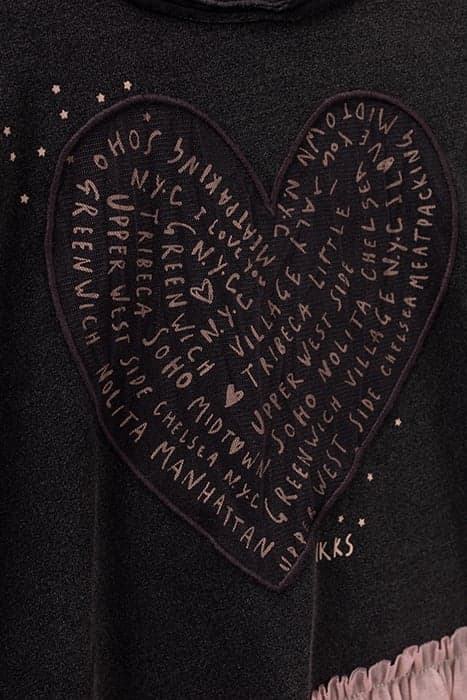 SOHO
GREENWICH
NOLITA MANHATTAN
UPPER WEST SIDE CHELSEA N.Y.C
N.Y.C
TRIBECA SOHO MIDTOWN
GREENWICH
MEATPAKING
N.Y.C
I
YOU
MEATPAKING
N.Y.C
VILLAGE
ITALY
TRIBECA LITTLE
UPPER WEST SIDE
SOHO NOLITA CHELSEA
GREENWICH VILLAGE N.Y.C I LOVE YOU
UPPER WEST SIDE CHELSEA MEATPACKING
MIDTOWN
IKKS